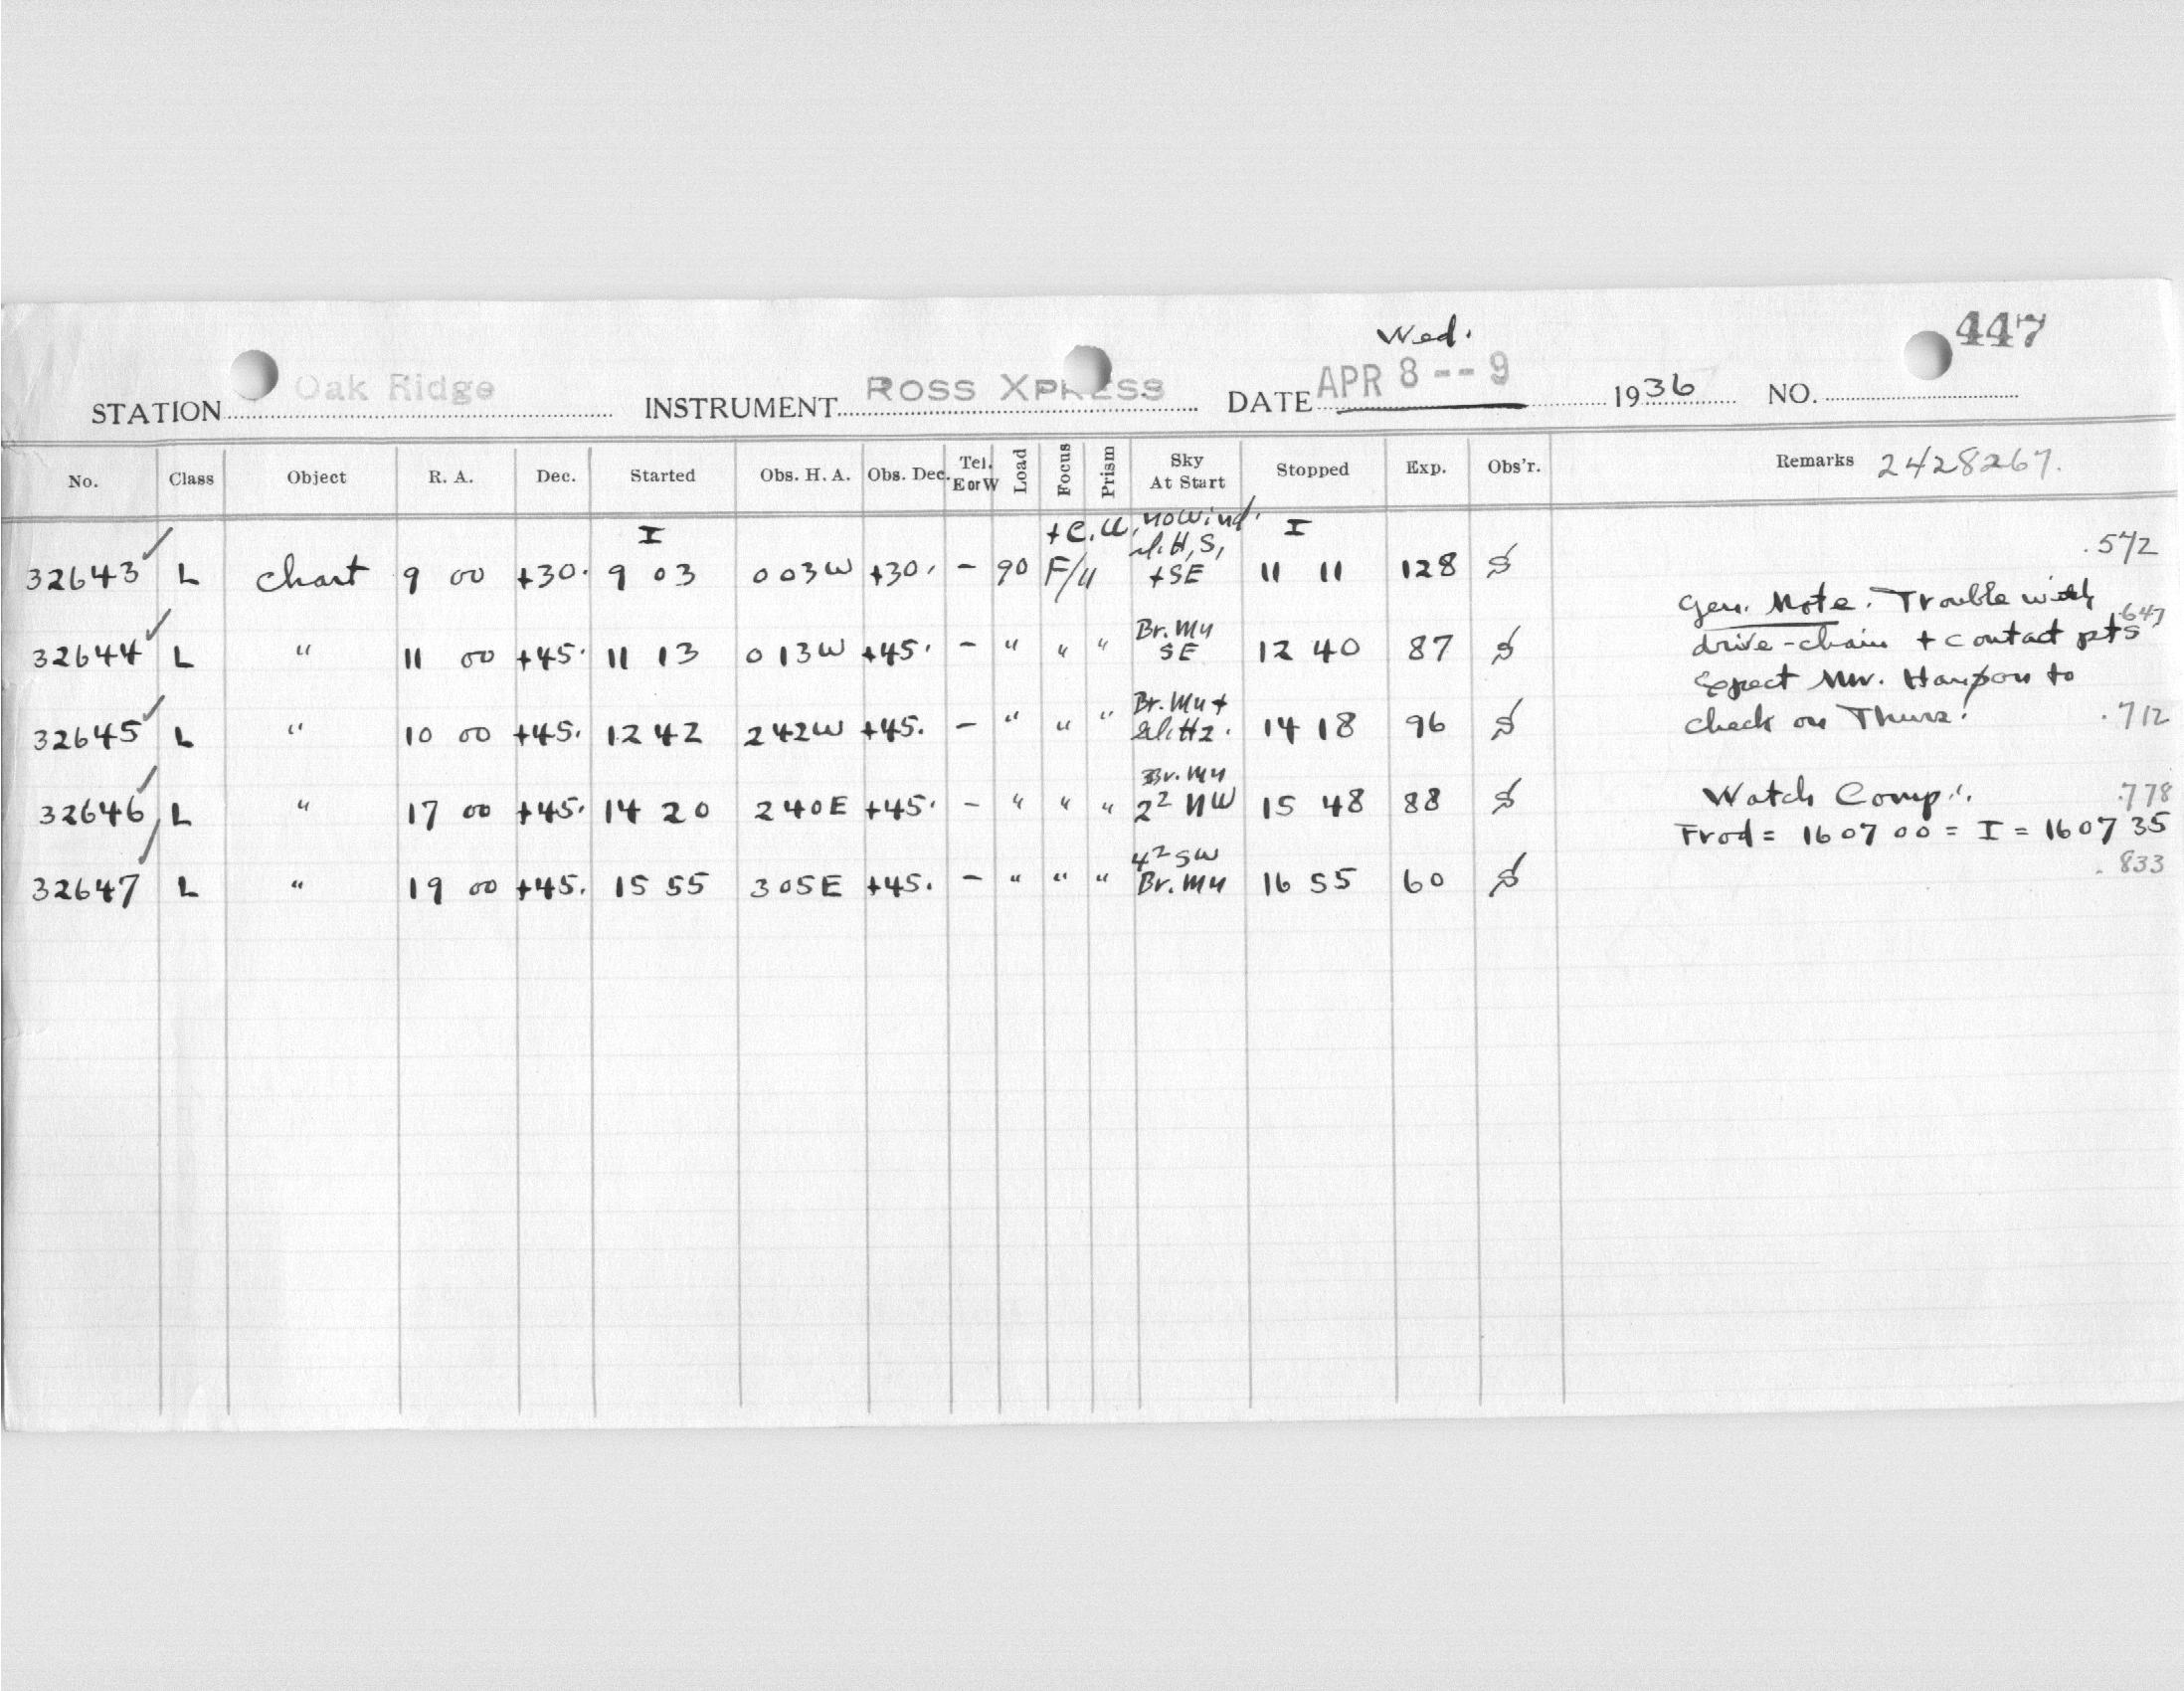 Wed.
447
STATION Oak Ridge INSTRUMENT ROSS XPRESS DATE APR 8 -- 9 1936 NO.
No. Class Object R. A. Dec. Started Obs. H. A. Obs. Dec. Tel. E or W Load Focus Prism Sky At Start Stopped Exp. Obs'r. Remarks 2428267.
I + C.U, no wind. I
32643 ✓ L Chart 9 00 +30. 9 03 0 03W +30. - 90 F/U sl. H, S, + SE 11 11 128 .572
Gen. Note. Trouble with
32644 ✓ L " 11 00 +45. 11 13 0 13W +45. - " " " Br. Mn SE 12 40 87 .647
drive-chain + contact pts
Expect Mr. to
32645 ✓ L " 10 00 +45. 12 42 2 42W +45. - " " " Br. Mn + sl. Hz. 14 18 96 .712
check on Thurs!
32646 ✓ L " 17 00 +45. 14 20 2 40E +45. - " " " Br. Mn 2² NW 15 48 88 .778
Watch Comp".
Frod = 16 07 00 = I = 16 07 35
32647 ✓ L " 19 00 +45. 15 55 3 05E +45. - " " " 4² SW Br. Mn 16 55 60 .833